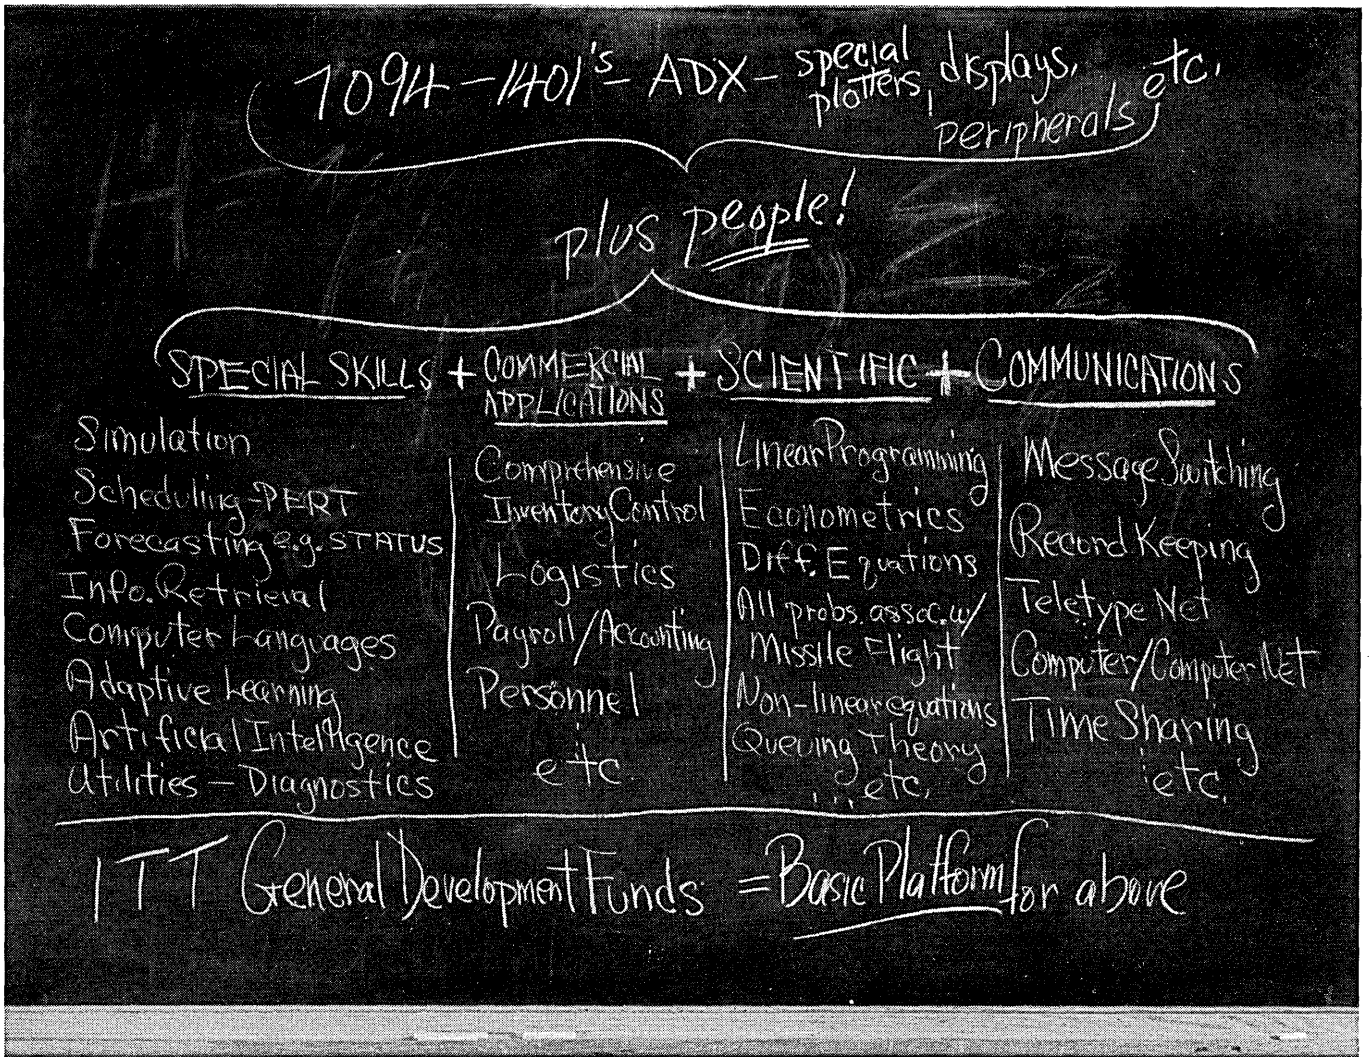 7094-1401's-ADX-special plotters, displays, peripherals etc.
plus people!
SPECIAL SKILLS + COMMERCIAL APPLICATIONS + SCIENTIFIC + COMMUNICATIONS
Simulation
Scheduling-PERT
Forecasting e.g. STATUS
Info. Retrieval
Computer Languages
Adaptive Learning
Artificial Intelligence
Utilities - Diagnostics
Comprehensive
Inventory Control
Logistics
Payroll/Accounting
Personnel
etc
Linear Programming
Econometrics
Diff. Equations
All probs. assoc. w/
Missile Flight
Non-linear equations
Queuing Theory
...etc.
Message Switching
Record Keeping
Teletype Net
Computer/Computer Net
Time Sharing
etc.
ITT General Development Funds = Basic Platform for above